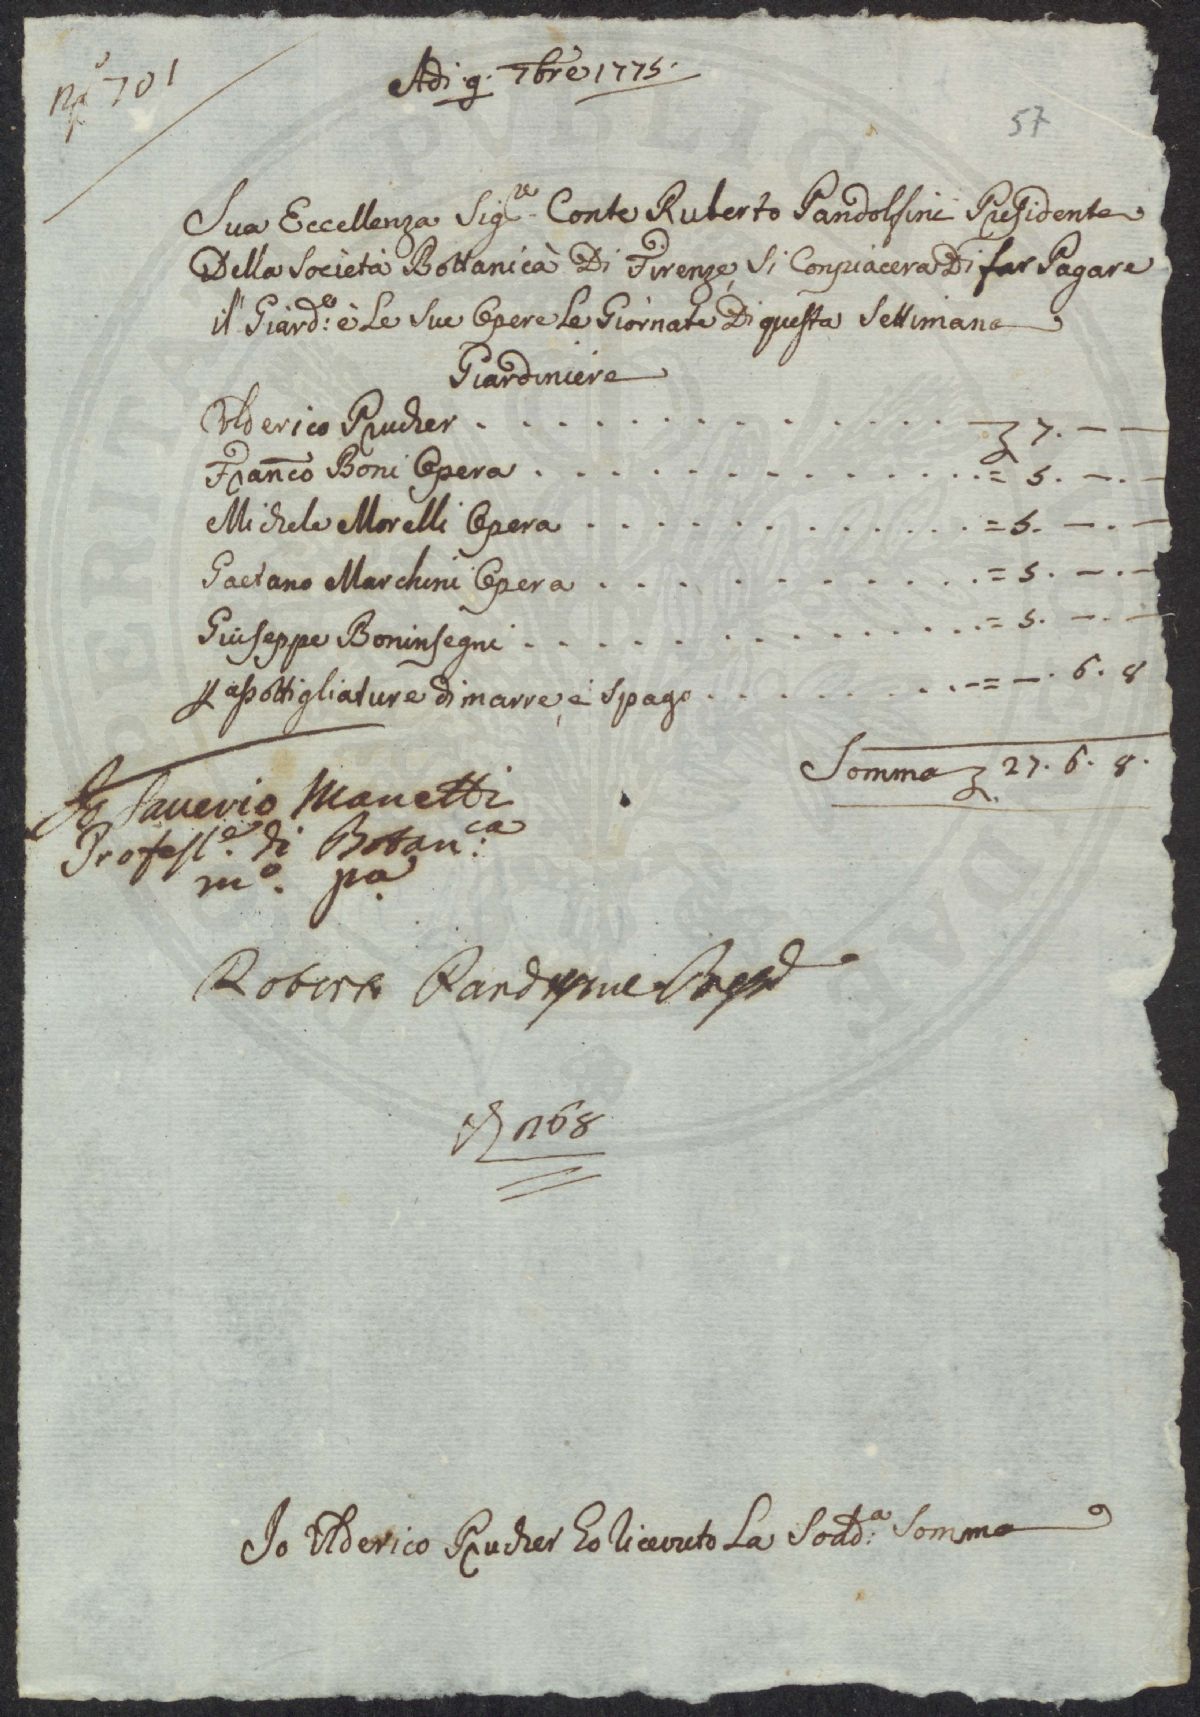 N.º 701
Adi. 9. 7bre 1775.
57
Sua Eccellenza Sig.re Conte Ruberto Pandolfini Presidente
Della Società Bottanicà Di Firenze, Si Conpiacera Di far Pagare
il Giard.e è Le Sue Opere Le Giornate Di questa Settimana
Giardiniere
Ulderico Prucher . . . . . . . . . . . . . 7. — —
Franco Boni Opera . . . . . . . . . . . . = 5. —. —
Michele Morelli Opera . . . . . . . . . . = 5. —. —
Gaetano Marchini Opera . . . . . . . . . = 5. —. —
Giuseppe Boninsegni . . . . . . . . . . . = 5. —. —
P asottigliature di marre, e Spago . . . . . . = —. 6. 8
Somma 27. 6. 8.
Saverio Manetti
Profess.e di Botan.ca
mo. pa.
Roberto Pandolfini Presid
268
Io Ulderico Prucher Ho Ricevuto La Sodd.a Somma